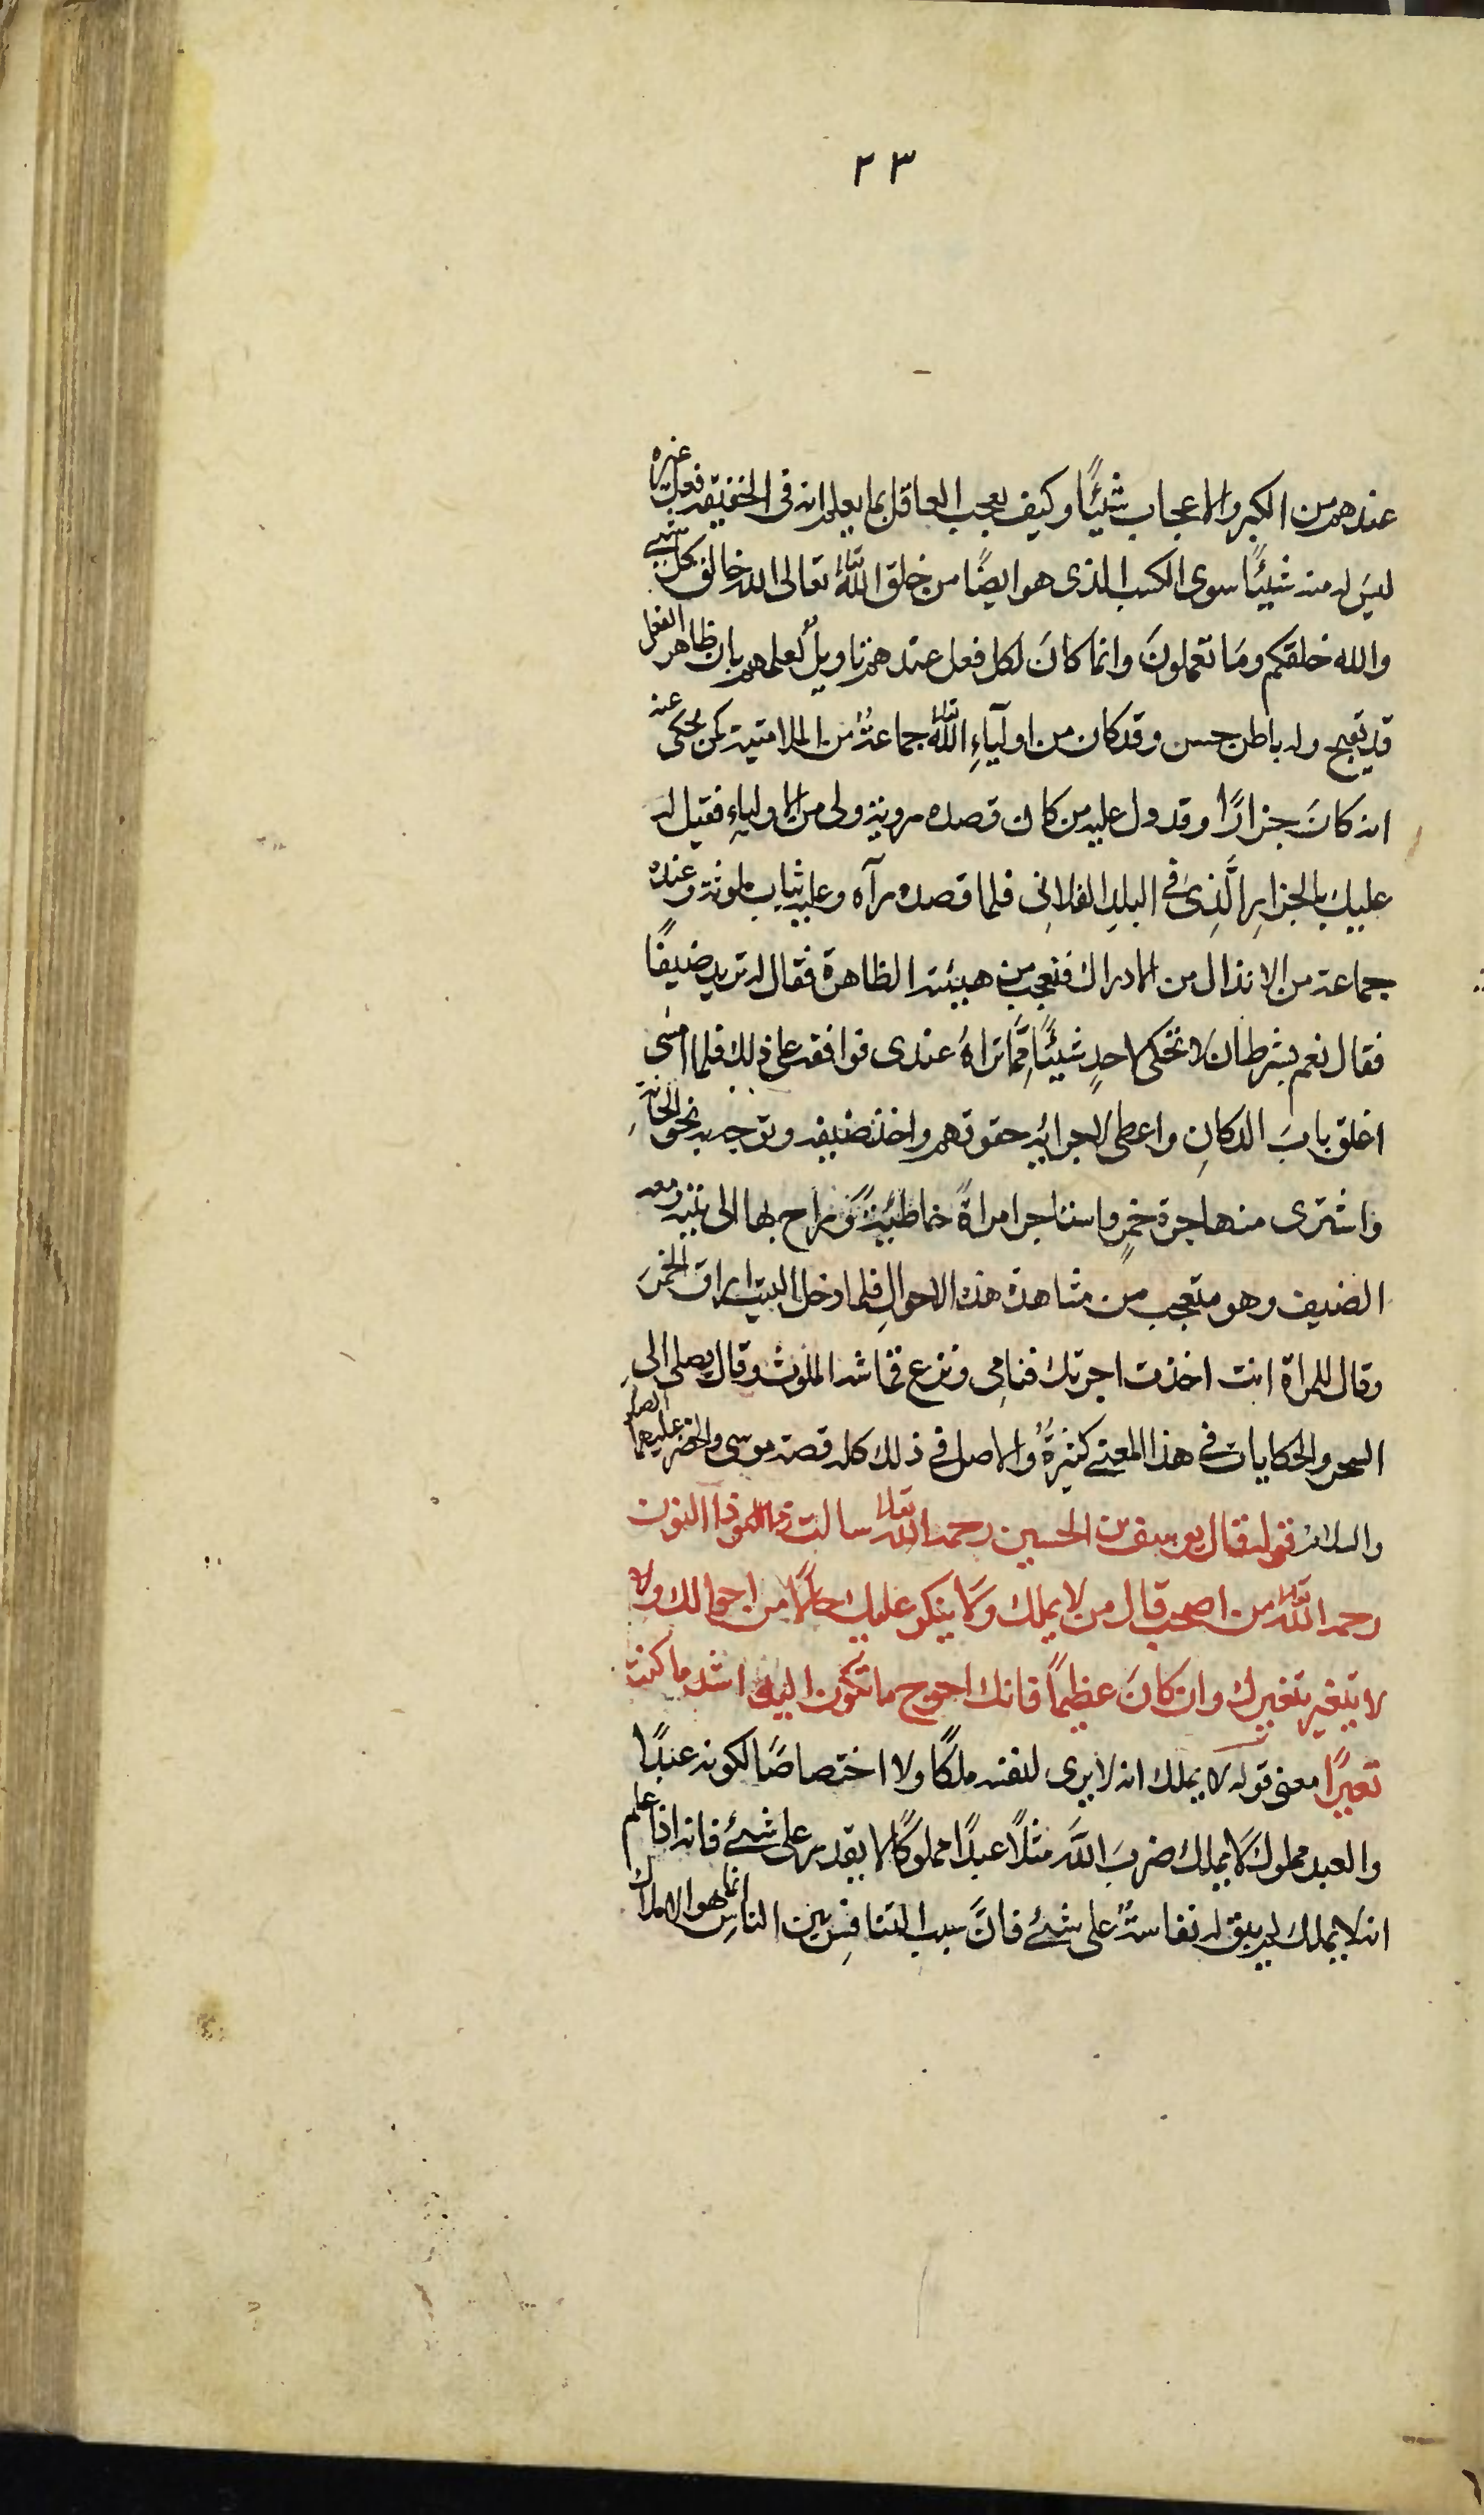 ٢٣
عندهم من الكبر والاعجاب شيئًا وكيف يعجب العاقل بما يعلم انه فى الحقيقة فعل غيره
ليس له منه شيئًا سوى الكسب الذى هو ايضًا من خلق الله تعالى الله خالق كل شيء
والله خلقكم ومَا تعملونَ وانما كانَ لكل فعل عندهم تاويلٌ لعلمهم بان ظاهر الفعل
قد يقبح وله باطن حسن وقد كان من اوليآءِ الله تعالى جماعةٌ من الملامتية كمن يحكى عنه
انه كانَ جزارًا وقد دل عليه من كان قصده روية ولى من الاولياءِ فقيل له
عليك بالجزار الَّذِى فى البلدِ الفلانِى فلما قصده رآه وعليه ثياب ملوثة وعنده
جماعة من الانذال من الادراك فتعجب من هيئته الظاهرة فقال له تريد ضيفًا
فقال نعم بشرط ان لا تحكى لاحدٍ شيئًا مِمَّا تراهُ عندى فوافقه على ذلك فلما امسَى
اغلق بابَ الدكانِ واعطى الجرايه حقوقهم واخذ ضيفه وتوجه به نحو الحانة
واشترى منها جرة خمرٍ واستاجر امراةً خاطئيةً وراح بها الى بيته ومعه
الضيف وهو متعجب من مشاهدة هذه الاحوالِ فلما دخل البيت اراق الخمرَ
وقال للمراة انت اخذت اجرتك فنامِى ونزع قماشه الملوث وقال يصلى الى
السحر والحكايات فى هذا المعنى كثيرةٌ والاصل فى ذلك كله قصة موسى والخضر عليهما الصلاة
والسلام قوله قال يوسف بن الحسين رحمه الله تعالى سالت ذا النون
رحمه الله تعالى من اصحب قال من لا يملك ولَا ينكر عليك حالًا من احوالك ولا
لا يتغير بتغيرك وان كانَ عظيمًا فانك احوج ما تكون اليه اشد ما كنت
تغيرًا معنى قوله لا يملك انه لا يرى لنفسه ملكًا ولا اختصاصًا لكونه عبدًا
والعبد مملوك لا يملك ضربَ اللهَ مثلًا عبدًا مملوكًا لا يقدر على شئ فانه اذا علم
انه لا يملك لم يبق له نفاسةٌ على شئ فانَّ سبب التنافس بين الناسِ انما هو الاملاك